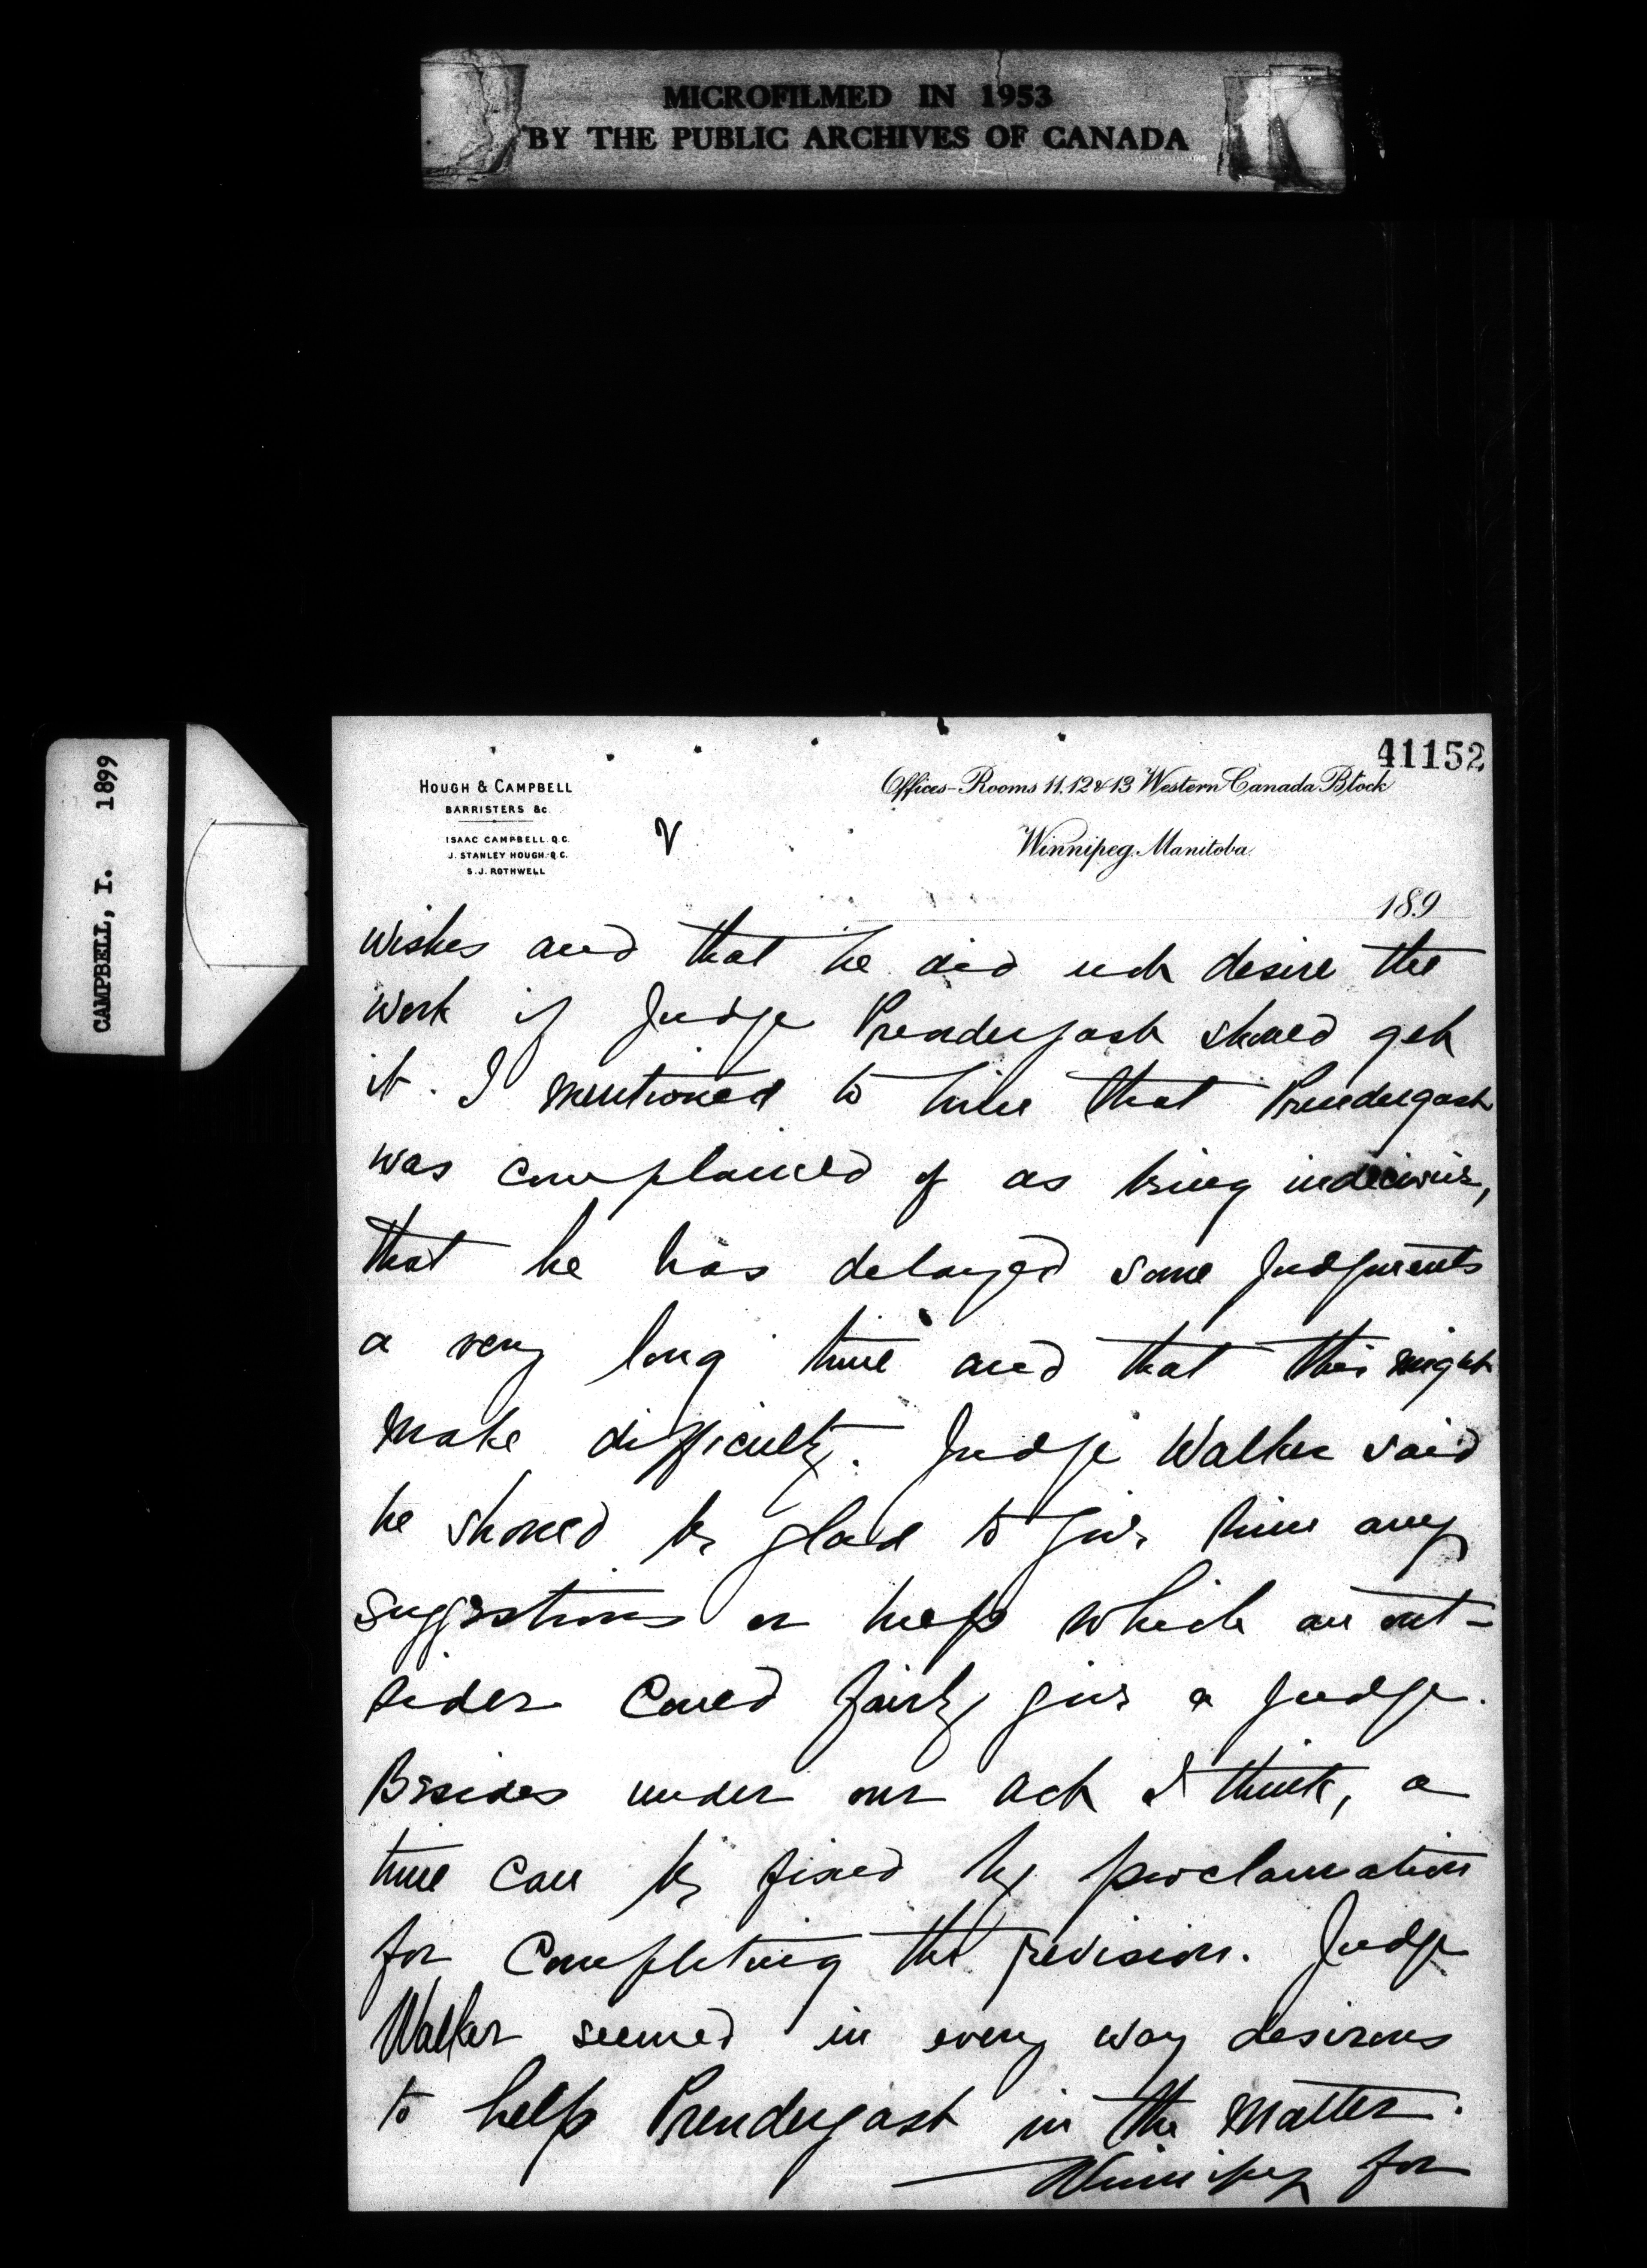 MICROFILMED IN 1953
BY THE PUBLIC ARCHIVES OF CANADA
CAMPBELL, I. 1899
41152
HOUGH & CAMPBELL
BARRISTERS &c.
ISAAC CAMPBELL. Q.C.
J. STANLEY HOUGH. Q.C.
S.J. ROTHWELL
V
Offices-Rooms 11.12 & 13 Western Canada Block
Winnipeg. Manitoba.
189
wishes and that he did not desire the
work if Judge Prendergast should get
it. I mentioned to him that Prendergast
was complained of as being indecisive,
that he has delayed some judgments
a very long time and that this might
make difficulty. Judge Walker said
he should be glad to give him any
suggestions or help which an out-
sider could fairly give a judge.
Besides under our Act I think, a
time can be fixed by proclamation
for completing the revision. Judge
Walker seemed in every way desirous
to help Prendergast in the matter.
— Winnipeg for